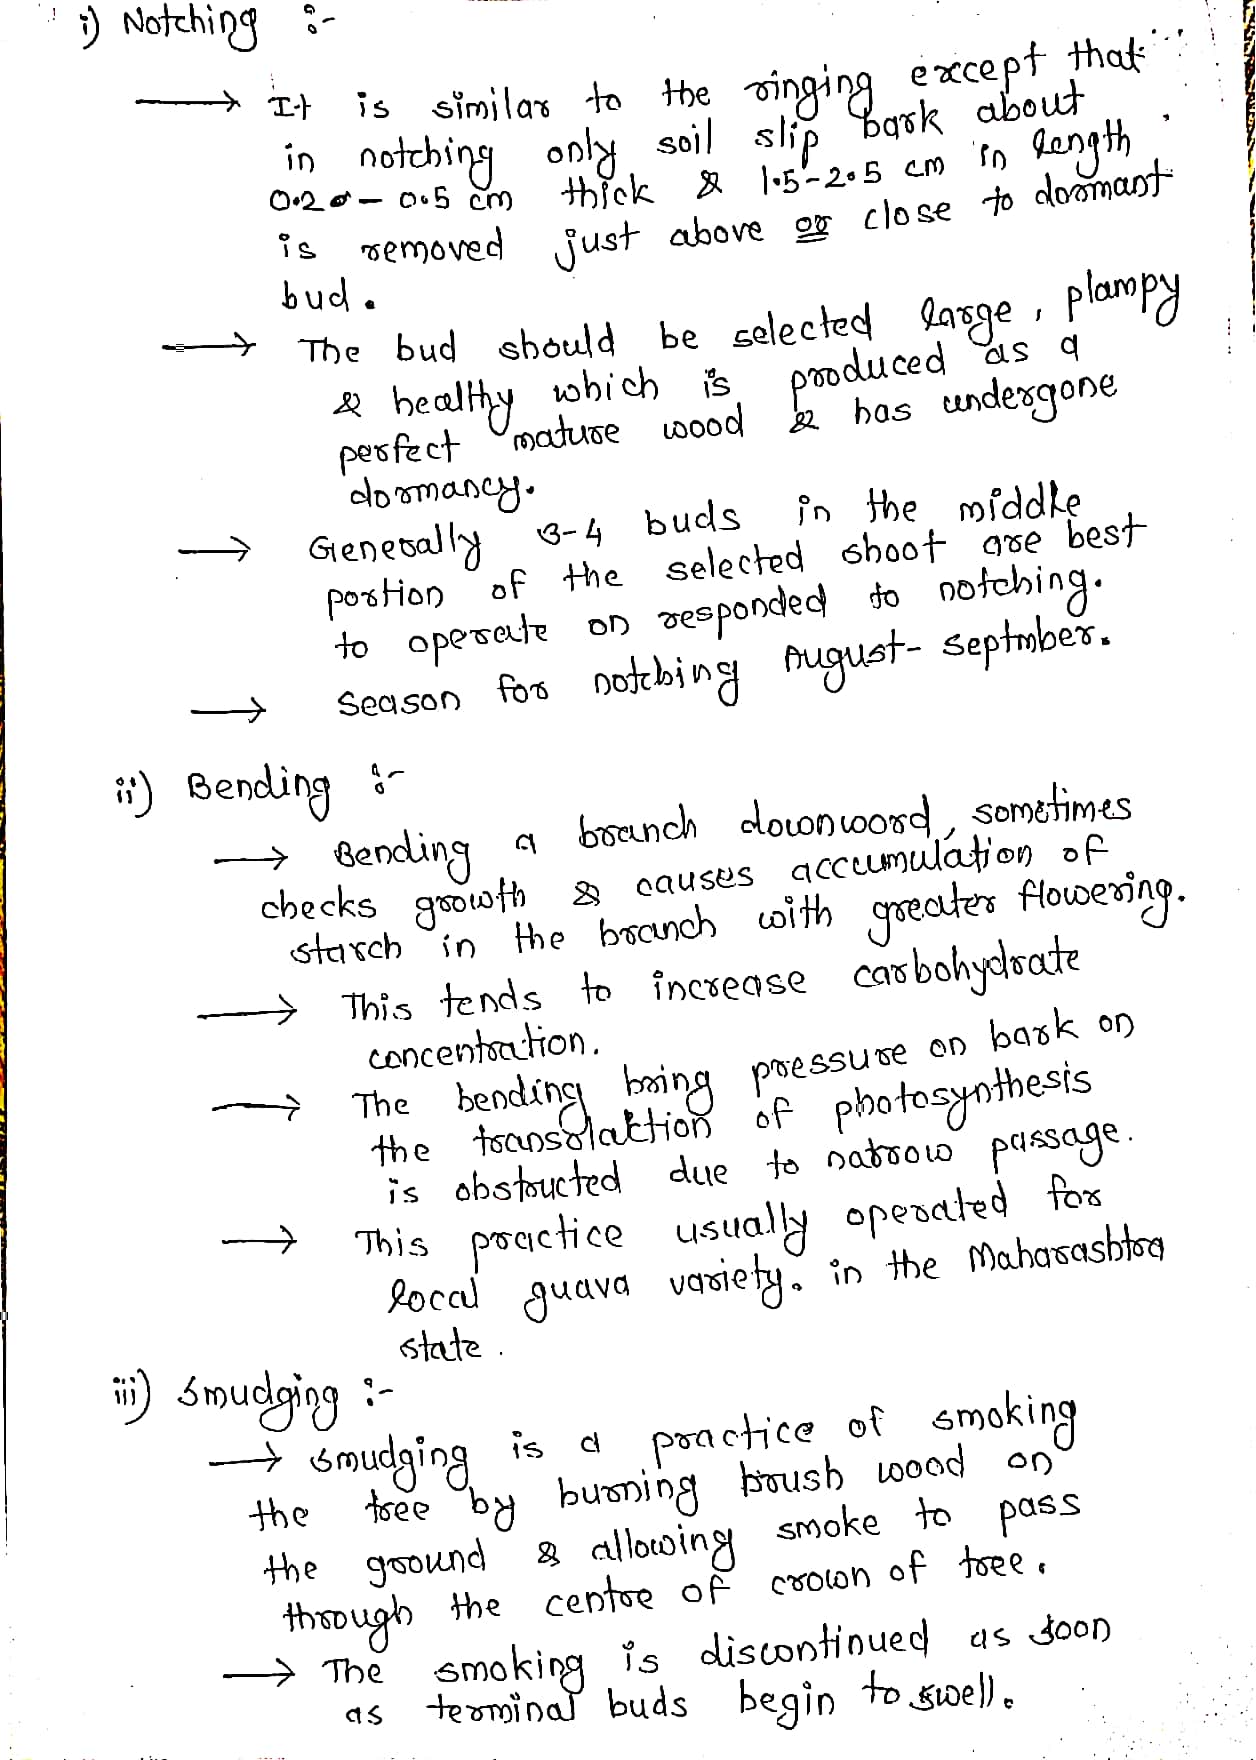 i) Notching :-
→ It is similar to the ringing except that
in notching only soil slip bark about
0.2 - 0.5 cm thick & 1.5-2.5 cm in length
is removed just above or close to dormant
bud.
→ The bud should be selected large, plampy
& healthy which is produced as a
perfect mature wood & has undergone
dormancy.
→ Generally 3-4 buds in the middle
portion of the selected shoot are best
to operate on responded to notching.
→ Season for notching August- septmber.
ii) Bending :-
→ Bending a branch downword, sometimes
checks growth & causes accumulation of
starch in the branch with greater flowering.
→ This tends to increase carbohydrate
concentration.
→ The bending bring pressure on bark on
the translaktion of photosynthesis
is obstructed due to narrow passage.
→ This practice usually operated for
local guava variety. in the Maharashtra
state.
iii) Smudging :-
→ Smudging is a practice of smoking
the tree by burning brush wood on
the ground & allowing smoke to pass
through the centre of crown of tree.
→ The smoking is discontinued as soon
as terminal buds begin to swell.